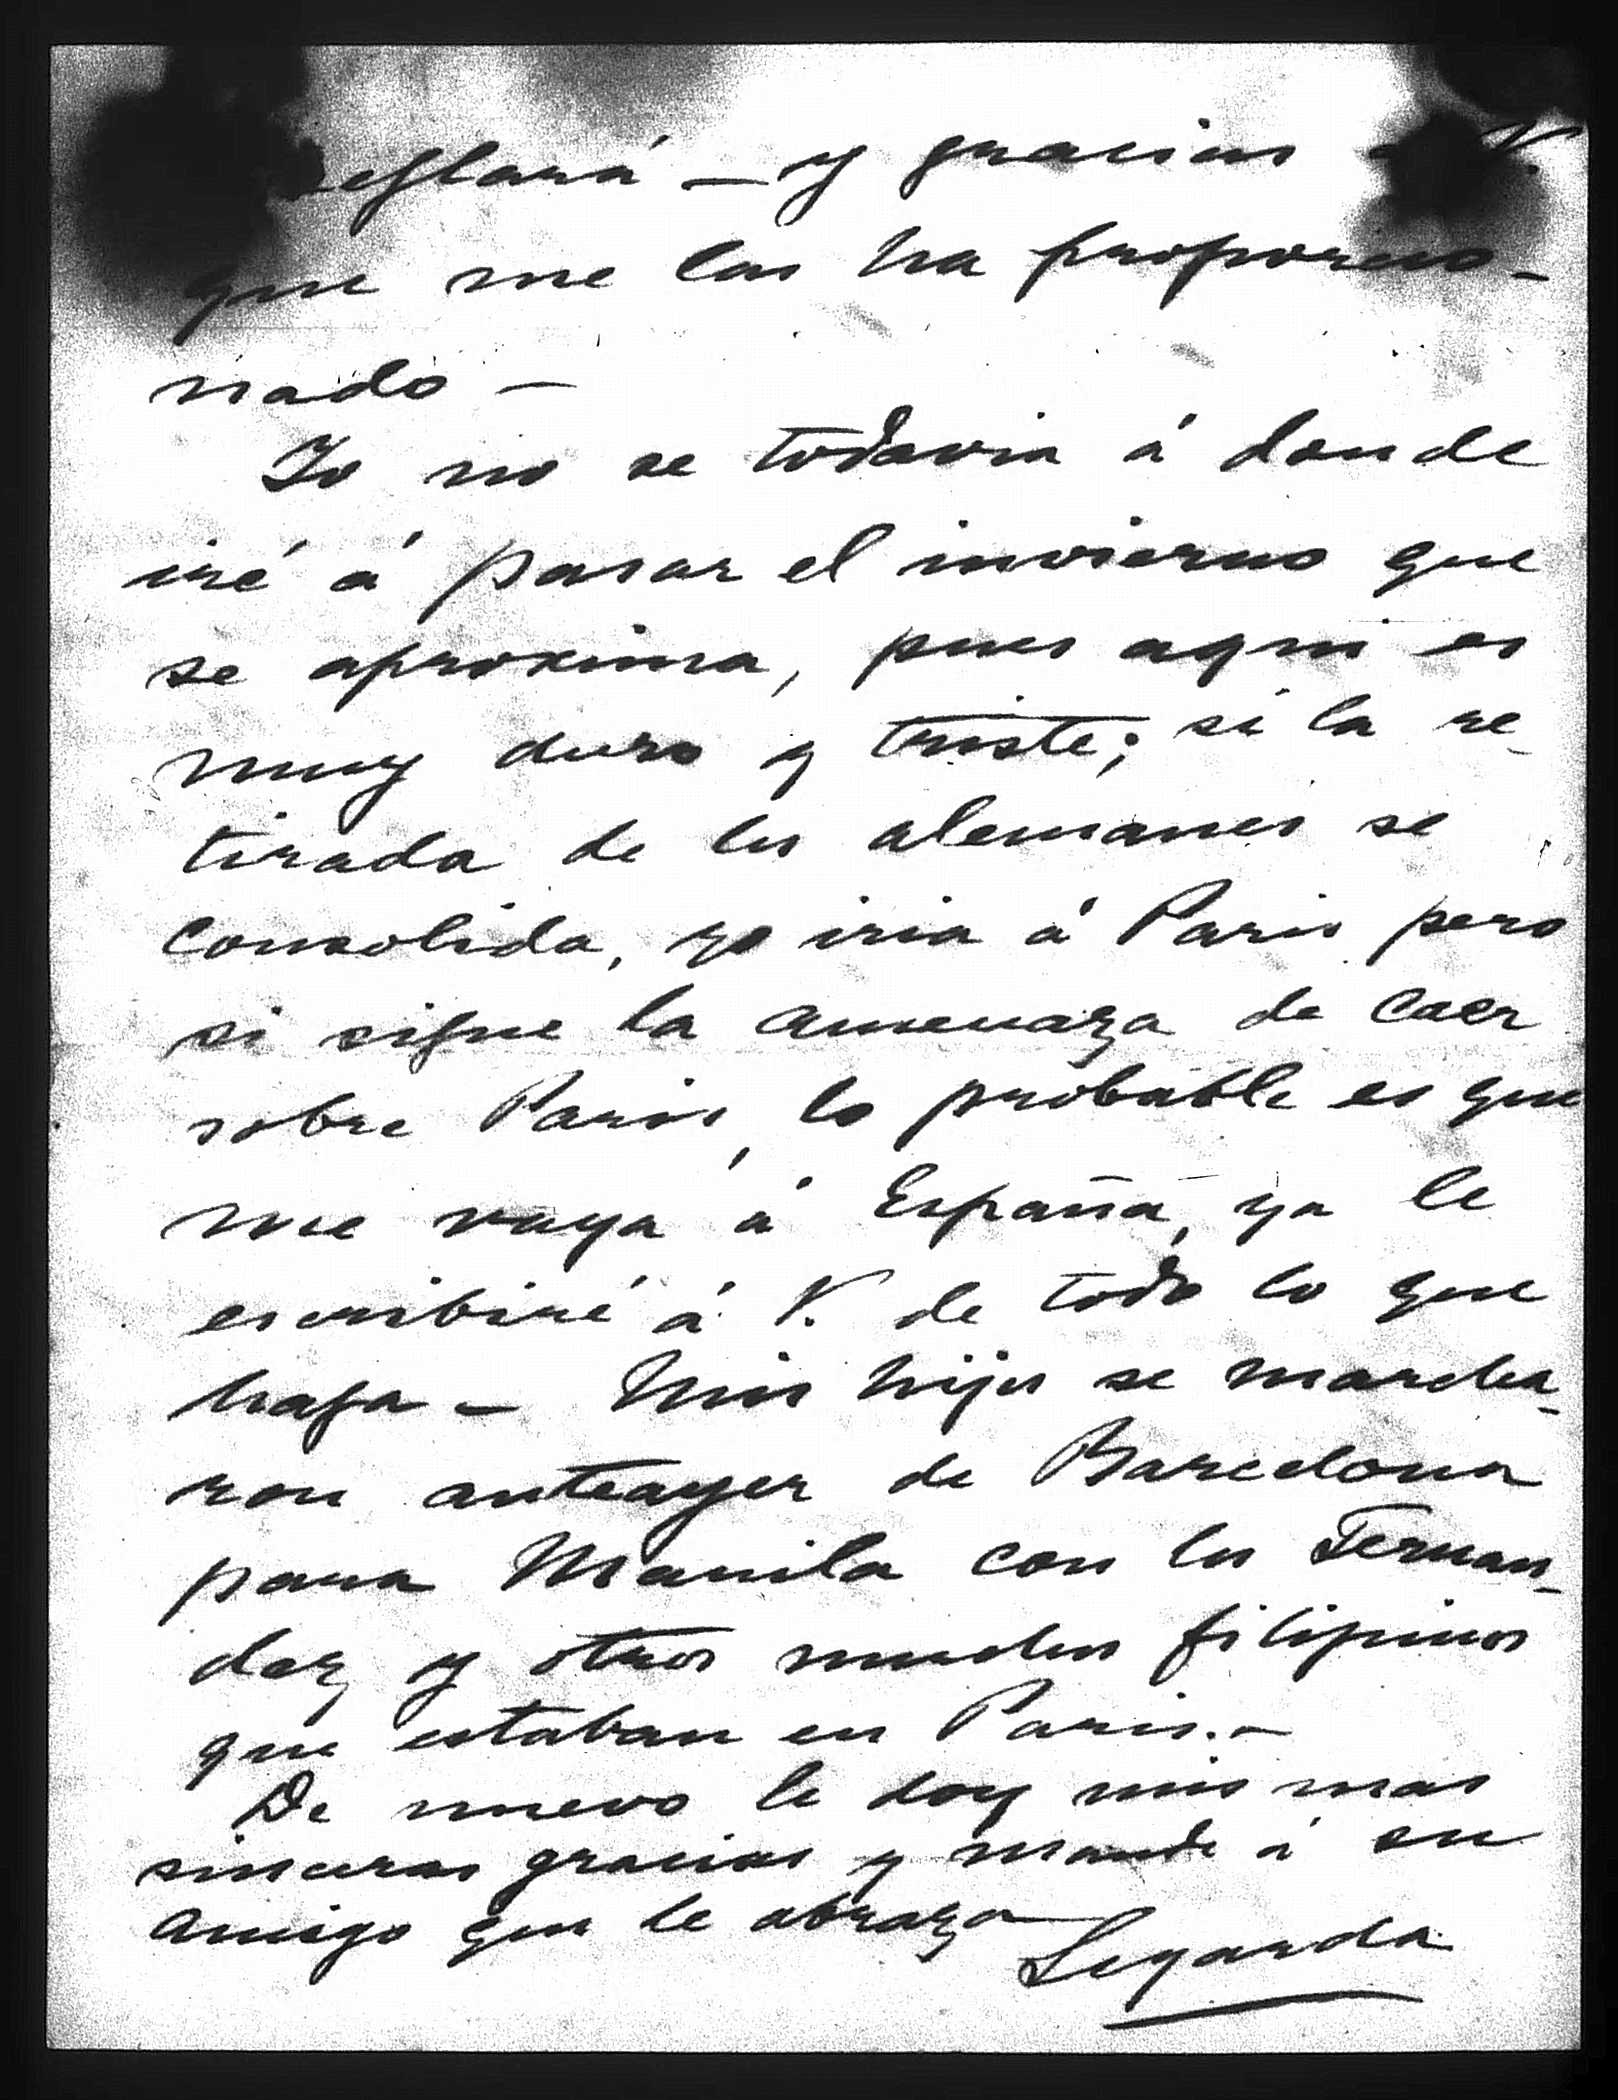 eglará — y gracias V.
que me las ha proporcio-
nado —
Yo no se todavia á donde
iré á pasar el invierno que
se aproxima, pues aqui es
muy duro y triste; si la re-
tirada de los alemanes se
consolida, yo iria á Paris pero
si sigue la amenaza de caer
sobre Paris, lo probable es que
me vaya á España, ya le
escribiré á V. de todo lo que
haga — Mis hijos se marcha-
ron anteayer de Barcelona
para Manila con los Fernan-
dez y otros muchos filipinos
que estaban en Paris. —
De nuevo le doy mis mas
sinceras gracias y mande á su
amigo que le abraza
Legarda